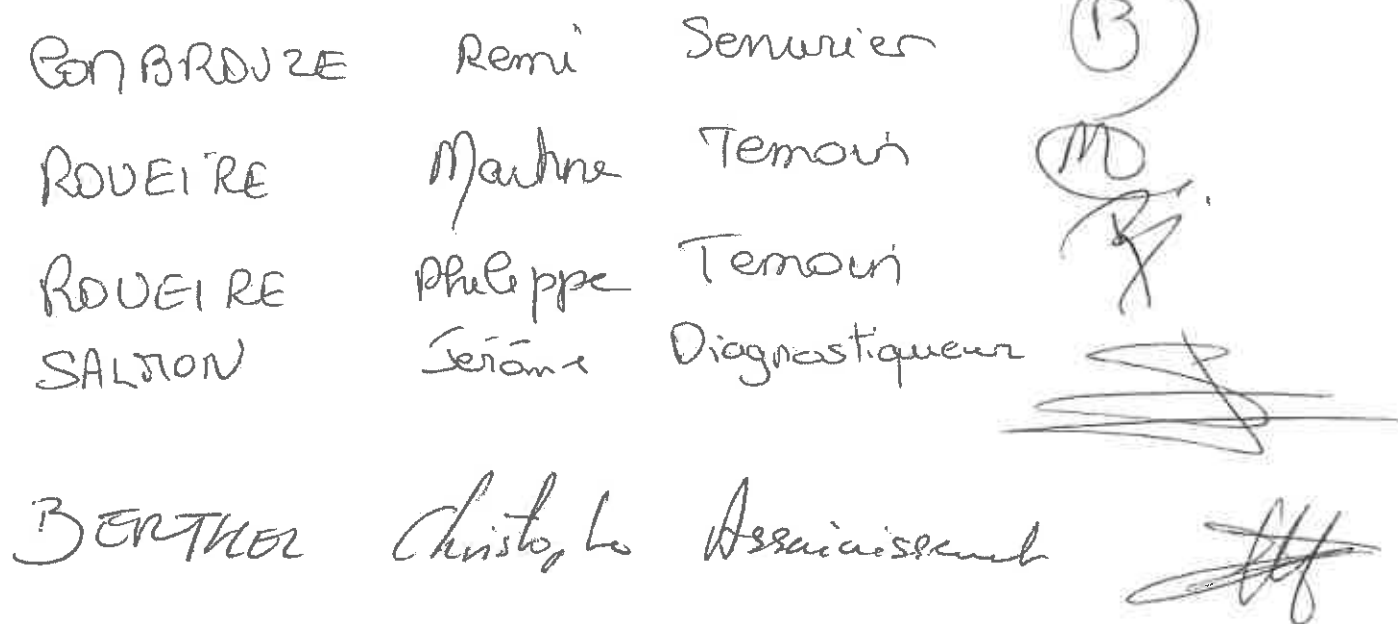 COMBROUZE Remi Serrurier B
ROUEIRE Martine Temoin M
ROUEIRE Philippe Temoin
SALMON Jerôme Diagnostiqueur
Christophe Assainissement